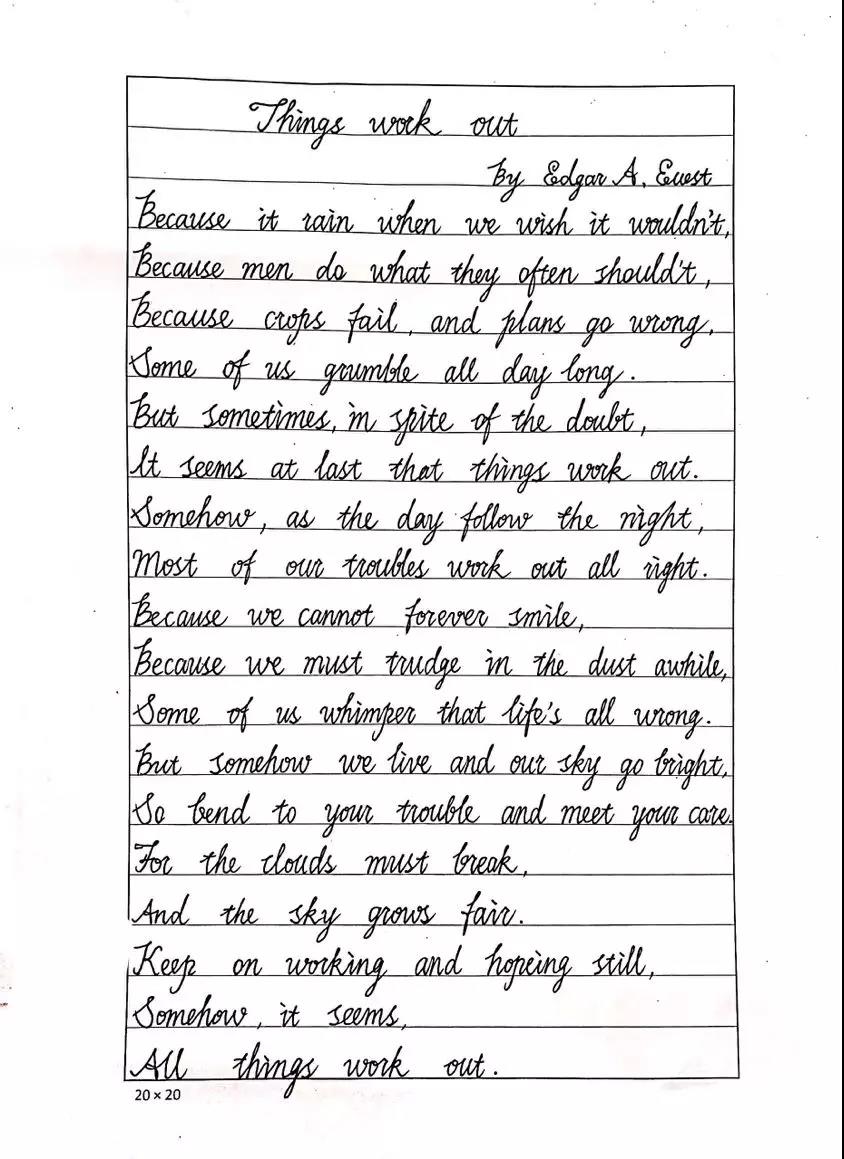 Things work out
by Edgar A. Euest
Because it rain when we wish it wouldn't,
Because men do what they often should't,
Because crops fail, and plans go wrong,
Some of us grumble all day long.
But sometimes, in spite of the doubt,
It seems at last that things work out.
Somehow, as the day follow the night,
Most of our troubles work out all right.
Because we cannot forever smile,
Because we must trudge in the dust awhile,
Some of us whimper that life's all wrong.
But somehow we live and our sky go bright,
So bend to your trouble and meet your care.
For the clouds must break,
And the sky grows fair.
Keep on working and hopeing still,
Somehow, it seems,
All things work out.
20×20